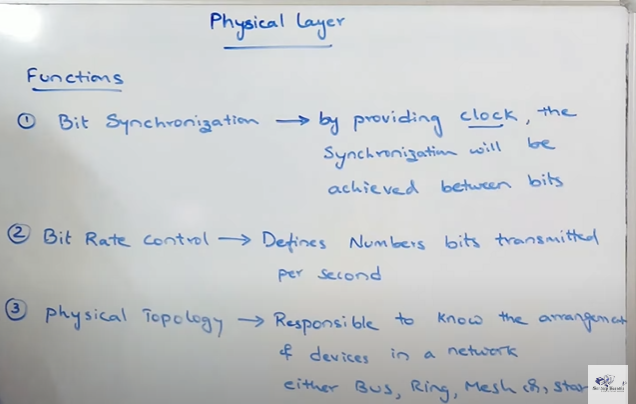 Physical Layer
Functions
① Bit Synchronization → by providing clock, the
Synchronization will be
achieved between bits
② Bit Rate control → Defines Numbers bits transmitted
per second
③ Physical Topology → Responsible to know the arrangement
of devices in a network
either Bus, Ring, Mesh &, star